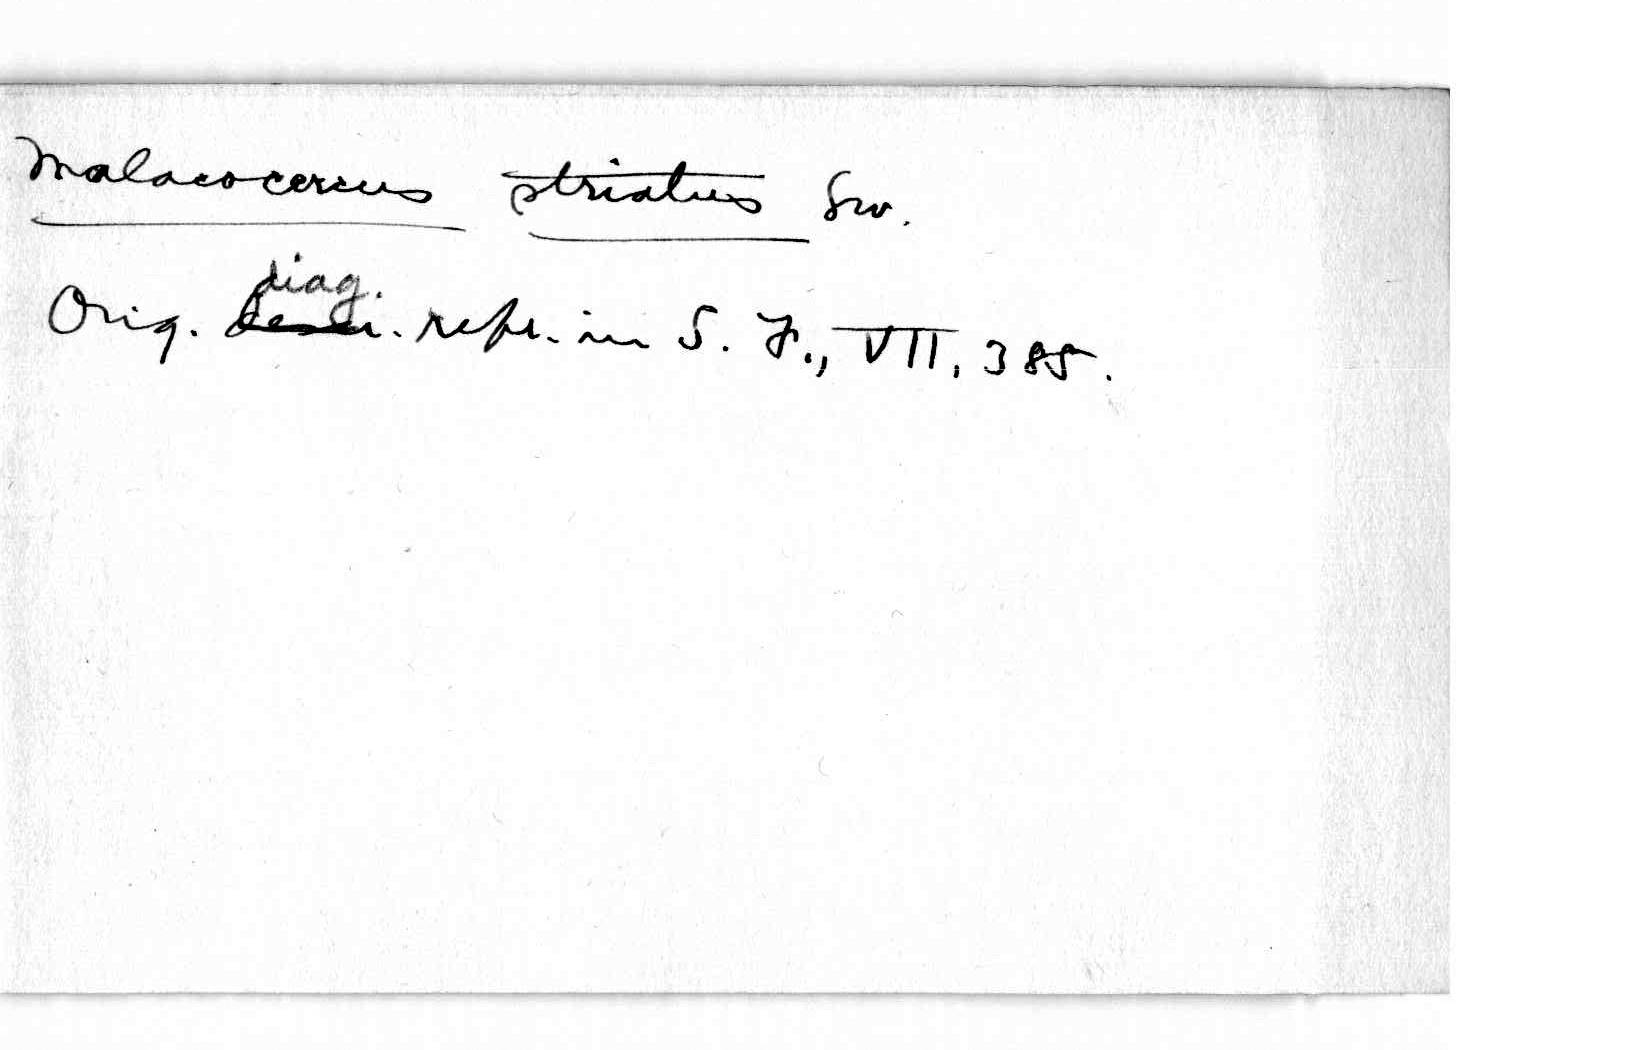 Malacocercus striatus Sw.
diag.
Orig. descr. repr. in S. F., VII, 385.